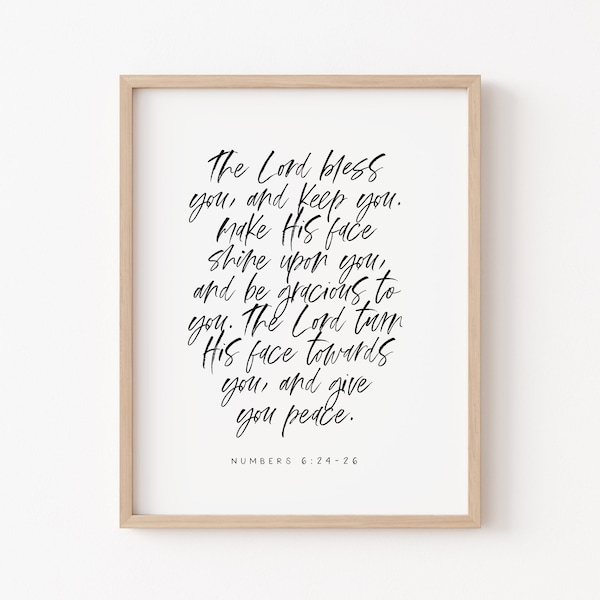 The Lord bless
you, and keep you.
make His face
shine upon you,
and be gracious to
you. The Lord turn
His face towards
you, and give
you peace.
NUMBERS 6:24-26